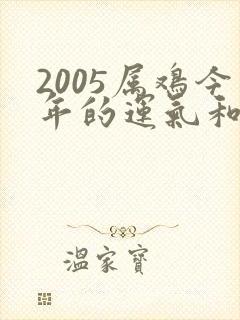 2005属鸡今
年的运气和
温家宝